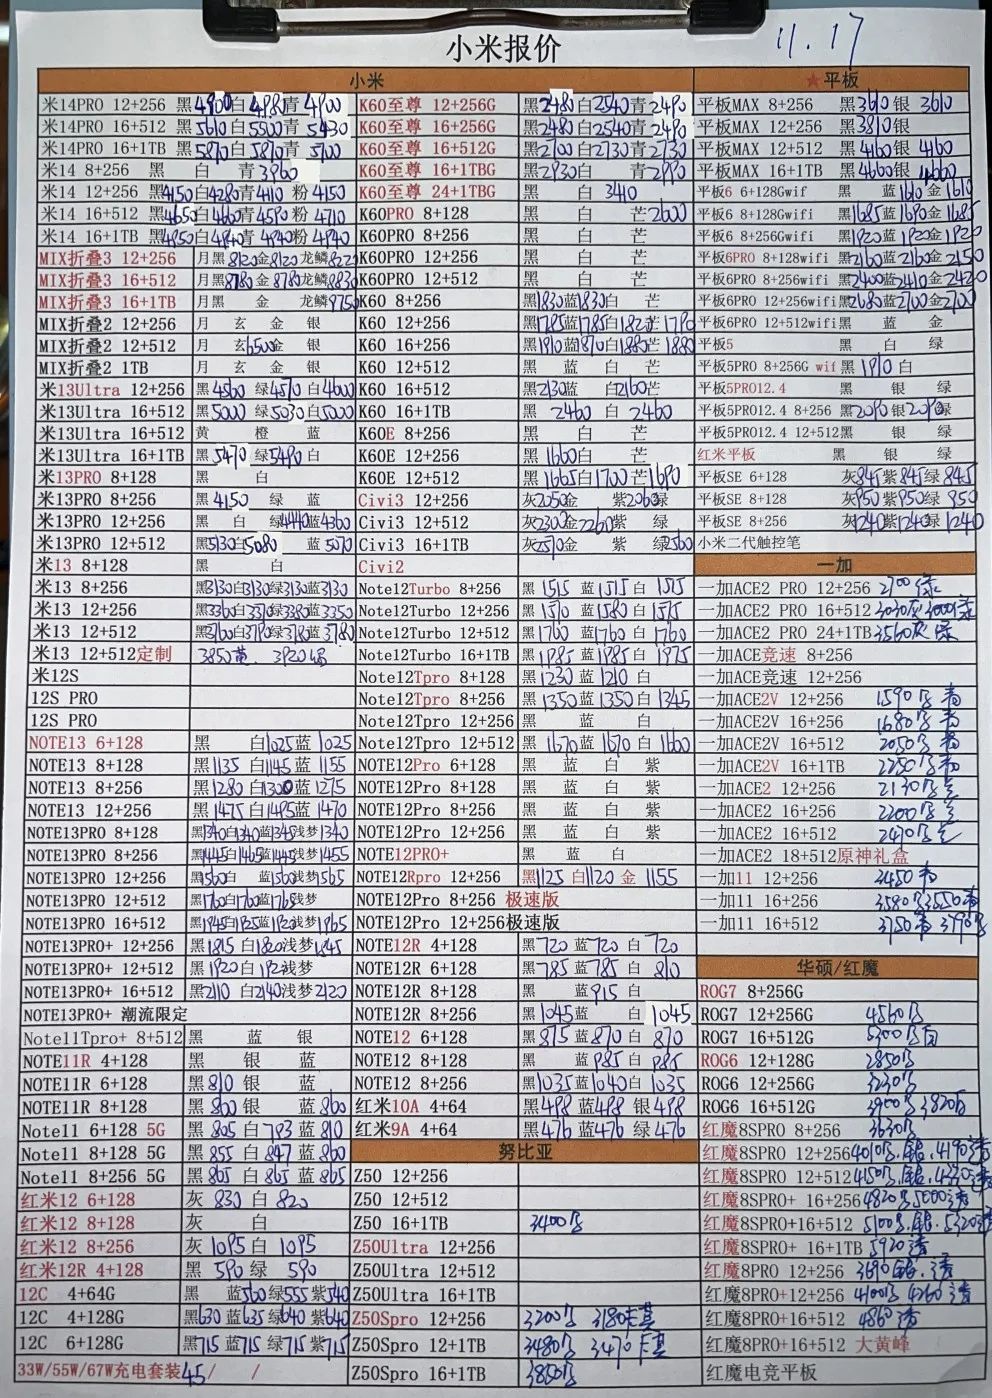 小米报价
11.17
小米
米14PRO 12+256 黑4900白4980青4900
米14PRO 16+512 黑5610白5500青5430
米14PRO 16+1TB 黑5870白5870青5700
米14 8+256 黑 白 青3960
米14 12+256 黑4150白4280青4110粉4150
米14 16+512 黑4650白4660青4590粉4710
米14 16+1TB 黑4950白4940青4940粉4940
MIX折叠3 12+256 月黑8120金8120龙鳞
MIX折叠3 16+512 月黑8780金8780龙鳞8830
MIX折叠3 16+1TB 月黑 金 龙鳞9750
MIX折叠2 12+256 月 玄 金 银
MIX折叠2 12+512 月 玄6500金 银
MIX折叠2 1TB 月 玄 金 银
米13Ultra 12+256 黑4560绿4570白4600
米13Ultra 16+512 黑5000绿5030白5000
米13Ultra 16+512 黄 橙 蓝
米13Ultra 16+1TB 黑5470绿5490白
米13PRO 8+128 黑 白
米13PRO 8+256 黑4150 绿 蓝
米13PRO 12+256 黑 白 绿4440蓝4360
米13PRO 12+512 黑5130白5080 蓝5070
米13 8+128 黑 白
米13 8+256 黑3130白3130绿3130蓝3130
米13 12+256 黑3360白3370绿3380蓝3350
米13 12+512 黑3760白3790绿3780蓝3780
米13 12+512定制 3850黄
米12S
12S PRO
12S PRO
NOTE13 6+128 黑 白1025蓝1025
NOTE13 8+128 黑1135白1145蓝1155
NOTE13 8+256 黑1280白1300蓝1275
NOTE13 12+256 黑1475白1485蓝1470
NOTE13PRO 8+128 黑1340白1340蓝1345浅梦1340
NOTE13PRO 8+256 黑1445白1465蓝1445浅梦1455
NOTE13PRO 12+256 黑1560白 蓝1560浅梦1565
NOTE13PRO 12+512 黑1760白1760蓝1765浅梦
NOTE13PRO 16+512 黑1945白1925蓝1920浅梦1965
NOTE13PRO+ 12+256 黑1815白1820浅梦1845
NOTE13PRO+ 12+512 黑1920白192浅梦
NOTE13PRO+ 16+512 黑2110白2140浅梦2120
NOTE13PRO+ 潮流限定
Note11Tpro+ 8+512 黑 蓝 银
NOTE11R 4+128 黑 银 蓝
NOTE11R 6+128 黑810银 蓝
NOTE11R 8+128 黑860银 蓝860
Note11 6+128 5G 黑805白793蓝810
Note11 8+128 5G 黑855白847蓝860
Note11 8+256 5G 黑865白865蓝865
红米12 6+128 灰830白820
红米12 8+128 灰 白
红米12 8+256 灰1095白1095
红米12R 4+128 黑590绿590
12C 4+64G 黑 蓝560绿555紫540
12C 4+128G 黑630蓝635绿640紫640
12C 6+128G 黑715蓝715绿715紫715
33W/55W/67W充电套装45/ /
K60至尊 12+256G 黑2480白2540青2490
K60至尊 16+256G 黑2480白2540青2490
K60至尊 16+512G 黑2700白2730青2730
K60至尊 16+1TBG 黑2930白 青2990
K60至尊 24+1TBG 黑 白3410
K60PRO 8+128 黑 白 芒2600
K60PRO 8+256 黑 白 芒
K60PRO 12+256 黑 白 芒
K60PRO 12+512 黑 白 芒
K60 8+256 黑1830蓝1830白 芒
K60 12+256 黑1785蓝1785白1820芒1790
K60 16+256 黑1910蓝1870白1880芒1880
K60 12+512 黑 蓝 白 芒
K60 16+512 黑2130蓝 白2160芒
K60 16+1TB 黑2460白2460
K60E 8+256 黑 白 芒
K60E 12+256 黑1660白 芒
K60E 12+512 黑1665白1700芒1690
Civi3 12+256 灰2050金 紫2060绿
Civi3 12+512 灰2300金2260紫 绿
Civi3 16+1TB 灰2570金 紫 绿2560
Civi2
Note12Turbo 8+256 黑1515蓝1515白1515
Note12Turbo 12+256 黑1570蓝1580白1575
Note12Turbo 12+512 黑1760蓝1760白1760
Note12Turbo 16+1TB 黑1985蓝1985白1975
Note12Tpro 8+128 黑1230蓝1210白
Note12Tpro 8+256 黑1350蓝1350白1345
Note12Tpro 12+256 黑 蓝 白
Note12Tpro 12+512 黑1670蓝1670白1660
NOTE12Pro 6+128 黑 蓝 白 紫
NOTE12Pro 8+128 黑 蓝 白 紫
NOTE12Pro 8+256 黑 蓝 白 紫
NOTE12Pro 12+256 黑 蓝 白 紫
NOTE12PRO+ 黑 蓝 白
NOTE12Rpro 12+256 黑1125白1120金1155
NOTE12Pro 8+256 极速版
NOTE12Pro 12+256极速版
NOTE12R 4+128 黑720蓝720白720
NOTE12R 6+128 黑785蓝785白810
NOTE12R 8+128 黑 蓝915白
NOTE12R 8+256 黑1045蓝 白1045
NOTE12 6+128 黑875蓝870白870
NOTE12 8+128 黑 蓝985白985
NOTE12 8+256 黑1035蓝1040白1035
红米10A 4+64 黑498蓝498银498
红米9A 4+64 黑476蓝476绿476
努比亚
Z50 12+256
Z50 12+512
Z50 16+1TB 3400
Z50Ultra 12+256
Z50Ultra 12+512
Z50Ultra 16+1TB
Z50Spro 12+256 3200 3180卡其
Z50Spro 12+1TB 3480 3470卡其
Z50Spro 16+1TB 3850
★平板
平板MAX 8+256 黑3610银3610
平板MAX 12+256 黑3810银
平板MAX 12+512 黑4160银4160
平板MAX 16+1TB 黑4660银4660
平板6 6+128Gwif 黑 蓝1610金1610
平板6 8+128Gwifi 黑1685蓝1690金1685
平板6 8+256Gwifi 黑1920蓝1920金1920
平板6PRO 8+128wifi 黑2160蓝2160金2150
平板6PRO 8+256wifi 黑2400蓝2410金2420
平板6PRO 12+256wifi黑2680蓝2700金2700
平板6PRO 12+512wifi黑 蓝 金
平板5 黑 白 绿
平板5PRO 8+256G wif 黑1910白
平板5PRO12.4 黑 银 绿
平板5PRO12.4 8+256 黑2090银2090绿
平板5PRO12.4 12+512黑 银 绿
红米平板 黑 银 绿
平板SE 6+128 灰845紫845绿845
平板SE 8+128 灰950紫950绿950
平板SE 8+256 灰1240紫1240绿1240
小米二代触控笔
一加
一加ACE2 PRO 12+256 2700 绿
一加ACE2 PRO 16+512 3030灰3000绿
一加ACE2 PRO 24+1TB 3560灰绿
一加ACE竞速 8+256
一加ACE竞速 12+256
一加ACE2V 12+256 1590 青
一加ACE2V 16+256 1680 青
一加ACE2V 16+512 2050 青
一加ACE2V 16+1TB 2250 青
一加ACE2 12+256 2130
一加ACE2 16+256 2200
一加ACE2 16+512 2470
一加ACE2 18+512原神礼盒
一加11 12+256 3450 青
一加11 16+256 3580 3550青
一加11 16+512 3750青 3790
华硕/红魔
ROG7 8+256G
ROG7 12+256G 4560
ROG7 16+512G 5300 白
ROG6 12+128G 2850
ROG6 12+256G 3230
ROG6 16+512G 3900 3820白
红魔8SPRO 8+256 3630
红魔8SPRO 12+256 4010 银.4190透
红魔8SPRO 12+512 4150
红魔8SPRO+ 16+256 4820 5000透
红魔8SPRO+16+512 5100 银.5320透
红魔8SPRO+ 16+1TB 5920 透
红魔8PRO 12+256 3690银.透
红魔8PRO+12+256 4100 4260透
红魔8PRO+16+512 4860透
红魔8PRO+16+512 大黄蜂
红魔电竞平板